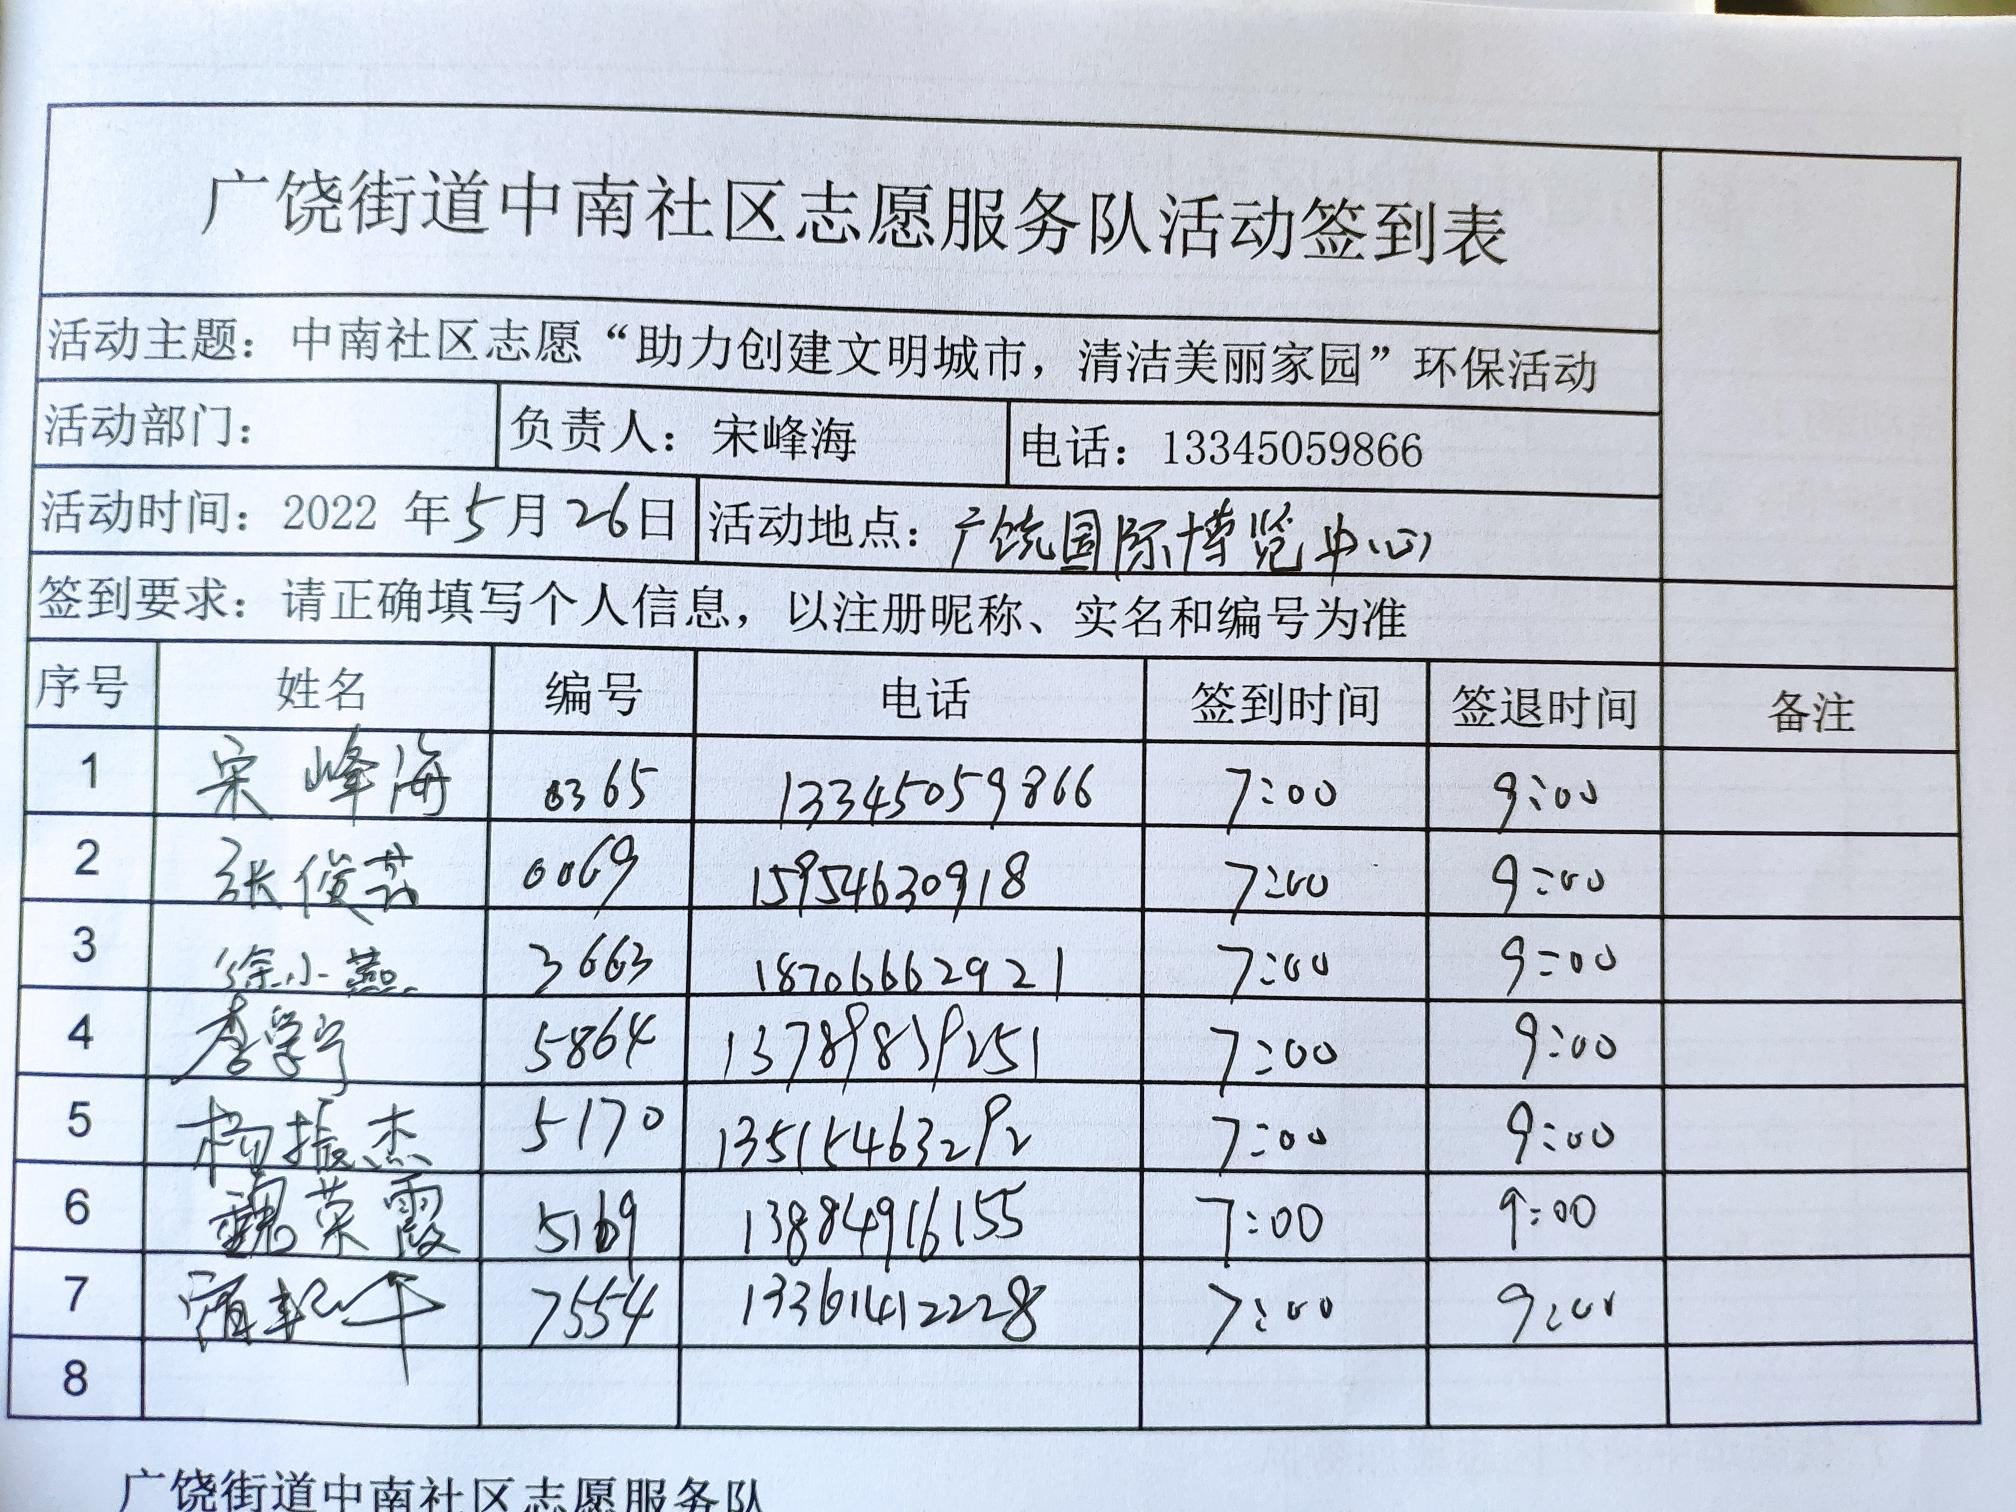 广饶街道中南社区志愿服务队活动签到表
活动主题：中南社区志愿“助力创建文明城市，清洁美丽家园”环保活动
活动部门： 负责人：宋峰海 电话：13345059866
活动时间：2022 年5月26日 活动地点：广饶国际博览中心
签到要求：请正确填写个人信息，以注册昵称、实名和编号为准
序号 姓名 编号 电话 签到时间 签退时间 备注
1 宋峰海 0365 13345059866 7:00 9:00
2 张俊 0069 15954630918 7:00 9:00
3 徐小燕 3663 18706662921 7:00 9:00
4 李学宁 5864 13789839251 7:00 9:00
5 杨振杰 5170 13515463292 7:00 9:00
6 魏荣霞 5169 13884916155 7:00 9:00
7 7554 13361412228 7:00 9:00
8
广饶街道中南社区志愿服务队